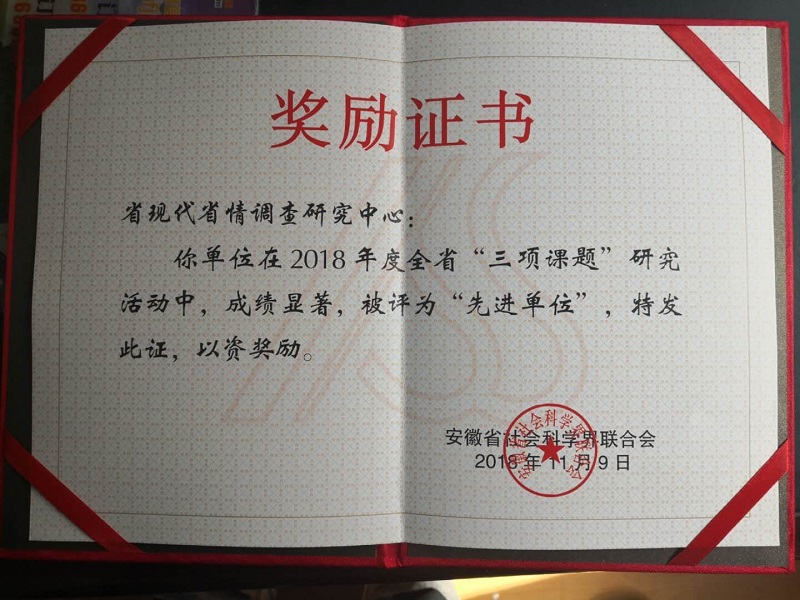 奖励证书
省现代省情调查研究中心：
你单位在2018年度全省“三项课题”研究
活动中，成绩显著，被评为“先进单位”，特发
此证，以资奖励。
安徽省社会科学界联合会
2018年11月9日
安徽省社会科学界联合会